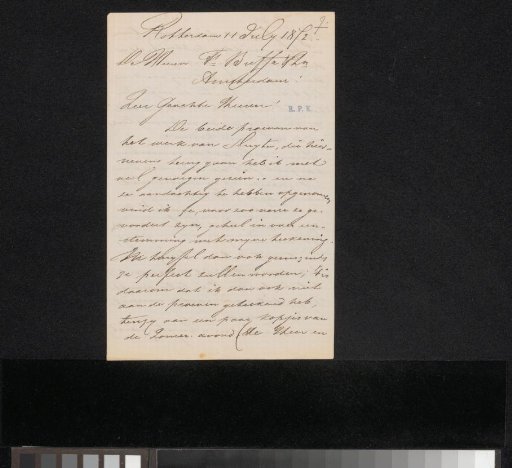 Rotterdam 11 July 1872.
De Heeren Fs Buffa & Zn
Amsterdam!
Zeer Geachte Heeren!
R.P.K.
De beide proeven van
het werk van Sluyter, die hier-
nevens terug gaan heb ik met
veel genoegen gezien. en na
ze aandachtig te hebben opgenomen,
vind ik ze, voor zoo verre ze ge-
vorderd zyn, geheel in over een-
stemming met myne teekening.
Ik twyffel dan ook geens, zinds
ze perfect zullen worden; 't is
daarom dat ik dan ook niet
aan de proeven geteekend heb,
tenzy aan een paar kopjes van
de Zomer avond (de Heer en